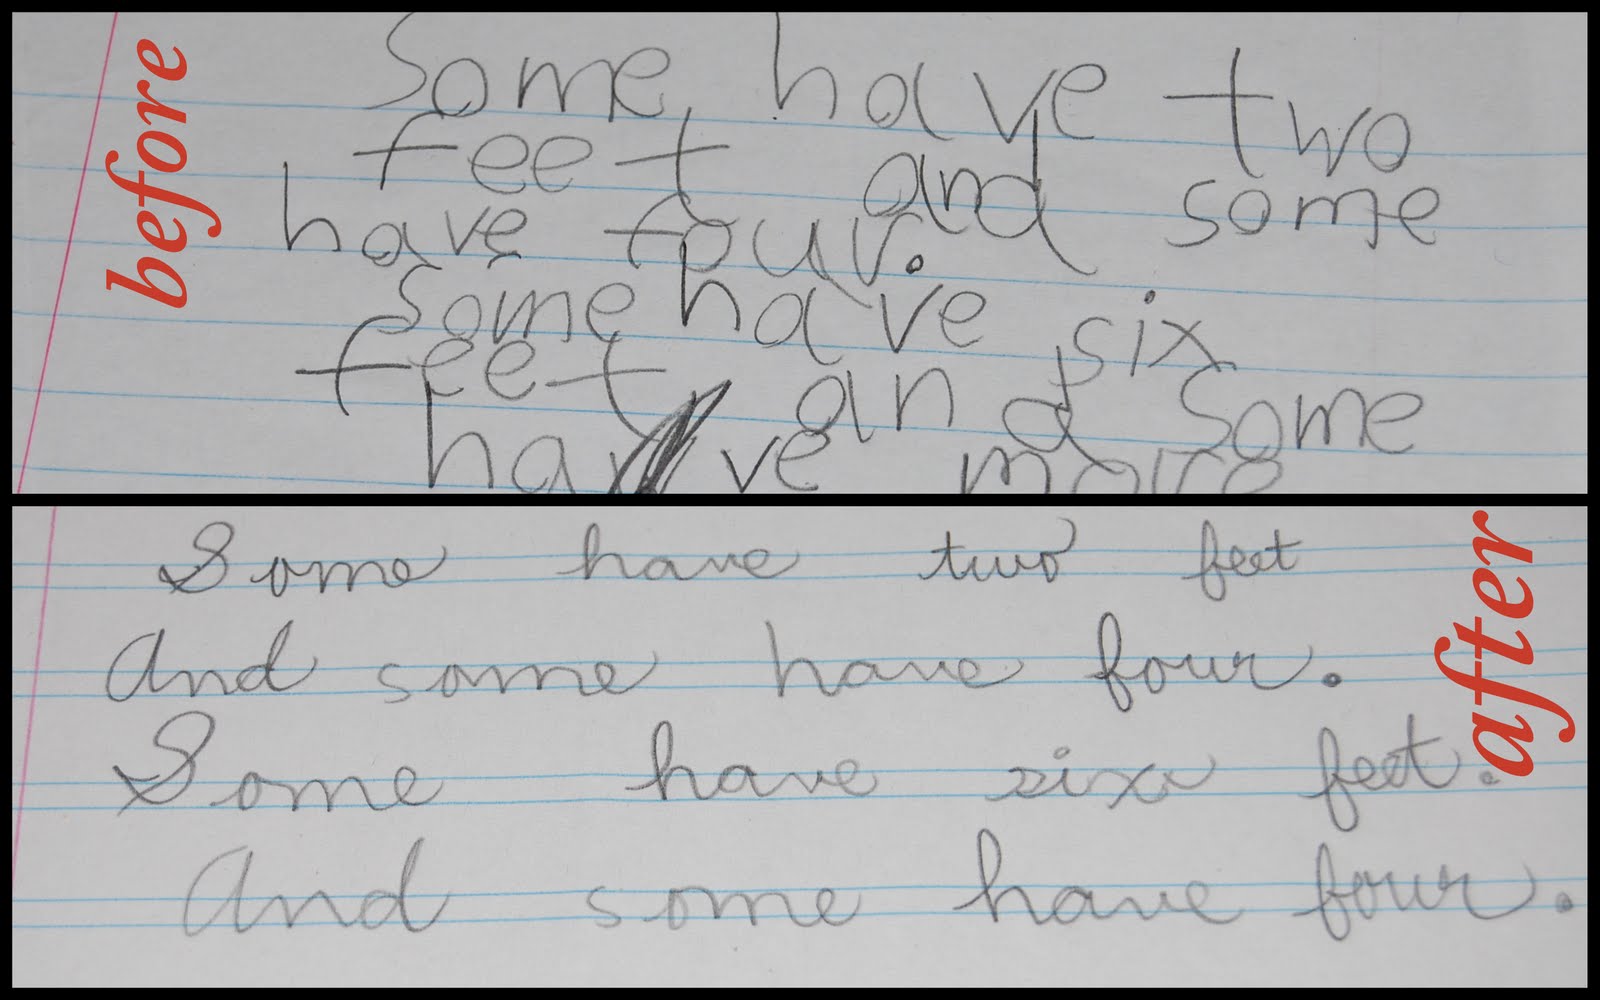 before
Some have two
feet and some
have four.
Some have six
feet and Some
have more
Some have two feet
And some have four.
Some have six feet.
And some have four.
after